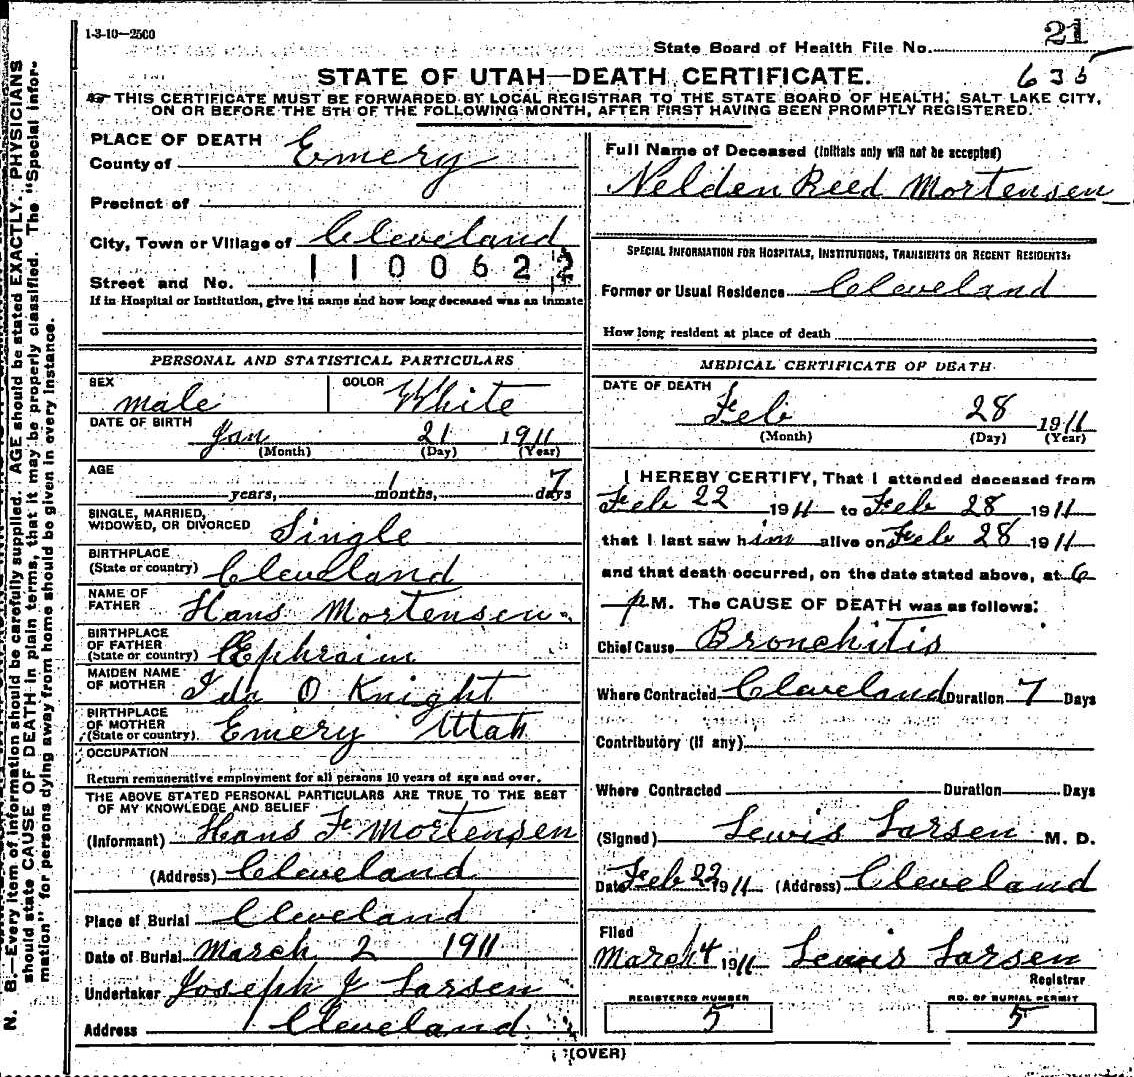 1-3-10—2500
21
State Board of Health File No.
STATE OF UTAH—DEATH CERTIFICATE.
635
THIS CERTIFICATE MUST BE FORWARDED BY LOCAL REGISTRAR TO THE STATE BOARD OF HEALTH, SALT LAKE CITY,
ON OR BEFORE THE 5TH OF THE FOLLOWING MONTH, AFTER FIRST HAVING BEEN PROMPTLY REGISTERED.
PLACE OF DEATH
County of Emery
Precinct of
City, Town or Village of Cleveland
1100622
Street and No.
If in Hospital or Institution, give its name and how long deceased was an inmate
PERSONAL AND STATISTICAL PARTICULARS
SEX male COLOR White
DATE OF BIRTH Jan 21 1911
(Month) (Day) (Year)
AGE
years, 1 months, 7 days
SINGLE, MARRIED,
WIDOWED, OR DIVORCED Single
BIRTHPLACE
(State or country) Cleveland
NAME OF
FATHER Hans Mortensen
BIRTHPLACE
OF FATHER
(State or country) Ephraim
MAIDEN NAME
OF MOTHER Ida O Knight
BIRTHPLACE
OF MOTHER
(State or country) Emery Utah
OCCUPATION
Return remunerative employment for all persons 10 years of age and over.
THE ABOVE STATED PERSONAL PARTICULARS ARE TRUE TO THE BEST
OF MY KNOWLEDGE AND BELIEF
(Informant) Hans F Mortensen
(Address) Cleveland
Place of Burial Cleveland
Date of Burial March 2 1911
Undertaker Joseph J Larsen
Address Cleveland
Full Name of Deceased (Initials only will not be accepted)
Nelden Reed Mortensen
SPECIAL INFORMATION FOR HOSPITALS, INSTITUTIONS, TRANSIENTS OR RECENT RESIDENTS:
Former or Usual Residence Cleveland
How long resident at place of death
MEDICAL CERTIFICATE OF DEATH
DATE OF DEATH
Feb 28 1911
(Month) (Day) (Year)
I HEREBY CERTIFY, That I attended deceased from
Feb 22 1911 to Feb 28 1911
that I last saw him alive on Feb 28 1911
and that death occurred, on the date stated above, at 6
p M. The CAUSE OF DEATH was as follows:
Chief Cause Bronchitis
Where Contracted Cleveland Duration 7 Days
Contributory (if any)
Where Contracted Duration Days
(Signed) Lewis Larsen M. D.
Date Feb 22 1911 (Address) Cleveland
Filed
March 4 1911 Lewis Larsen
Registrar
REGISTERED NUMBER
5
NO. OF BURIAL PERMIT
5
(OVER)
N. B.—Every item of information should be carefully supplied. AGE should be stated EXACTLY. PHYSICIANS
should state CAUSE OF DEATH in plain terms, that it may be properly classified. The "Special Infor-
mation" for persons dying away from home should be given in every instance.